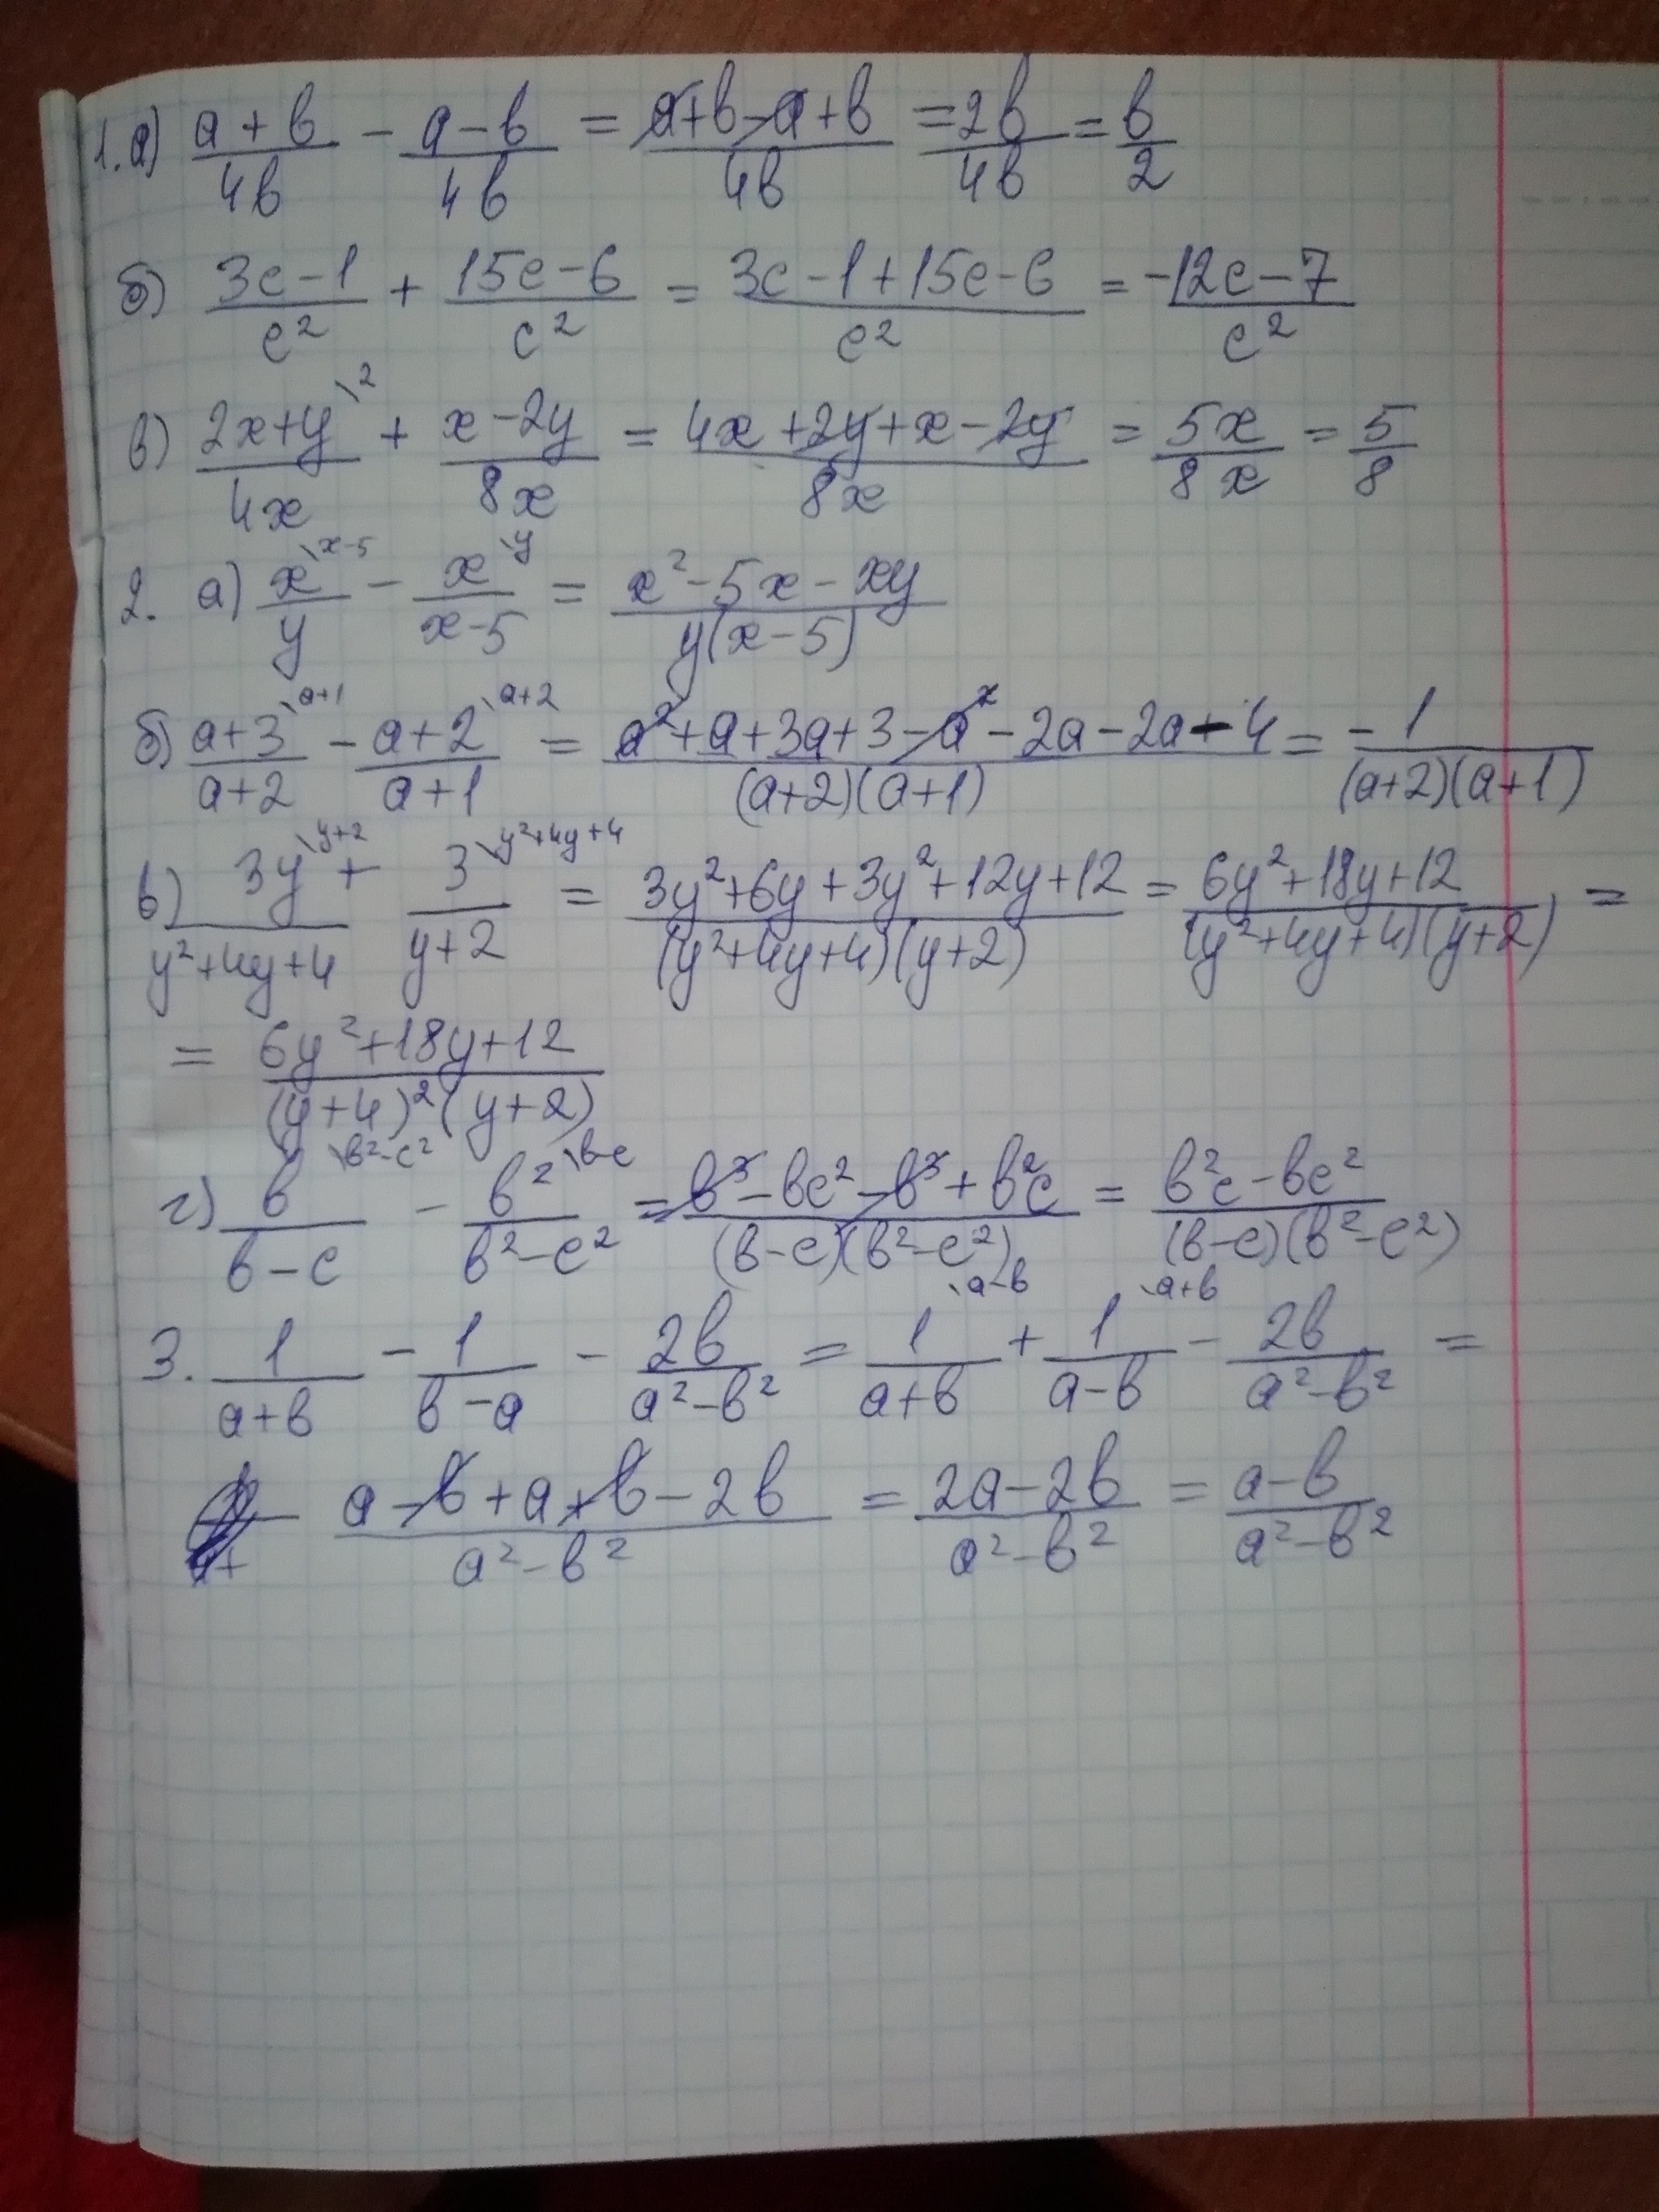 1. а) (a+b)/(4b) - (a-b)/(4b) = (a+b-a+b)/(4b) = 2b/(4b) = b/2
б) (3c-1)/c² + (15c-6)/c² = (3c-1+15c-6)/c² = (-12c-7)/c²
в) (2x+y)/(4x) \2 + (x-2y)/(8x) = (4x+2y+x-2y)/(8x) = 5x/(8x) = 5/8
2. а) x/y \x-5 - x/(x-5) \y = (x²-5x-xy)/(y(x-5))
б) (a+3)/(a+2) \a+1 - (a+2)/(a+1) \a+2 = (a²+a+3a+3-a²-2a-2a-4)/((a+2)(a+1)) = -1/((a+2)(a+1))
в) 3y/(y²+4y+4) \y+2 + 3/(y+2) \y²+4y+4 = (3y²+6y+3y²+12y+12)/((y²+4y+4)(y+2)) = (6y²+18y+12)/((y²+4y+4)(y+2)) =
= (6y²+18y+12)/((y+4)²(y+2))
г) b/(b-c) \b²-c² - b²/(b²-c²) \b-c = (b³-bc²-b³+b²c)/((b-c)(b²-c²)) = (b²c-bc²)/((b-c)(b²-c²))
3. 1/(a+b) - 1/(b-a) - 2b/(a²-b²) = 1/(a+b) \a-b + 1/(a-b) \a+b - 2b/(a²-b²) =
(a-b+a+b-2b)/(a²-b²) = (2a-2b)/(a²-b²) = (a-b)/(a²-b²)